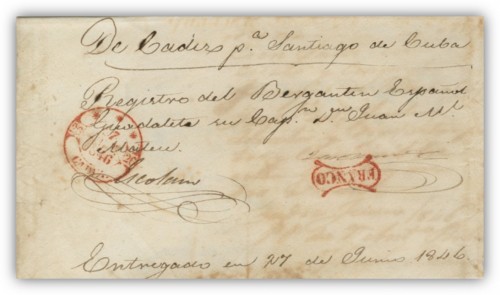 De Cadiz p.ª Santiago de Cuba
Registro del Bergantin Español
Guadalete su Cap.n D. Juan M.l
FRANCO
Entregado en 27 de Junio 1846.